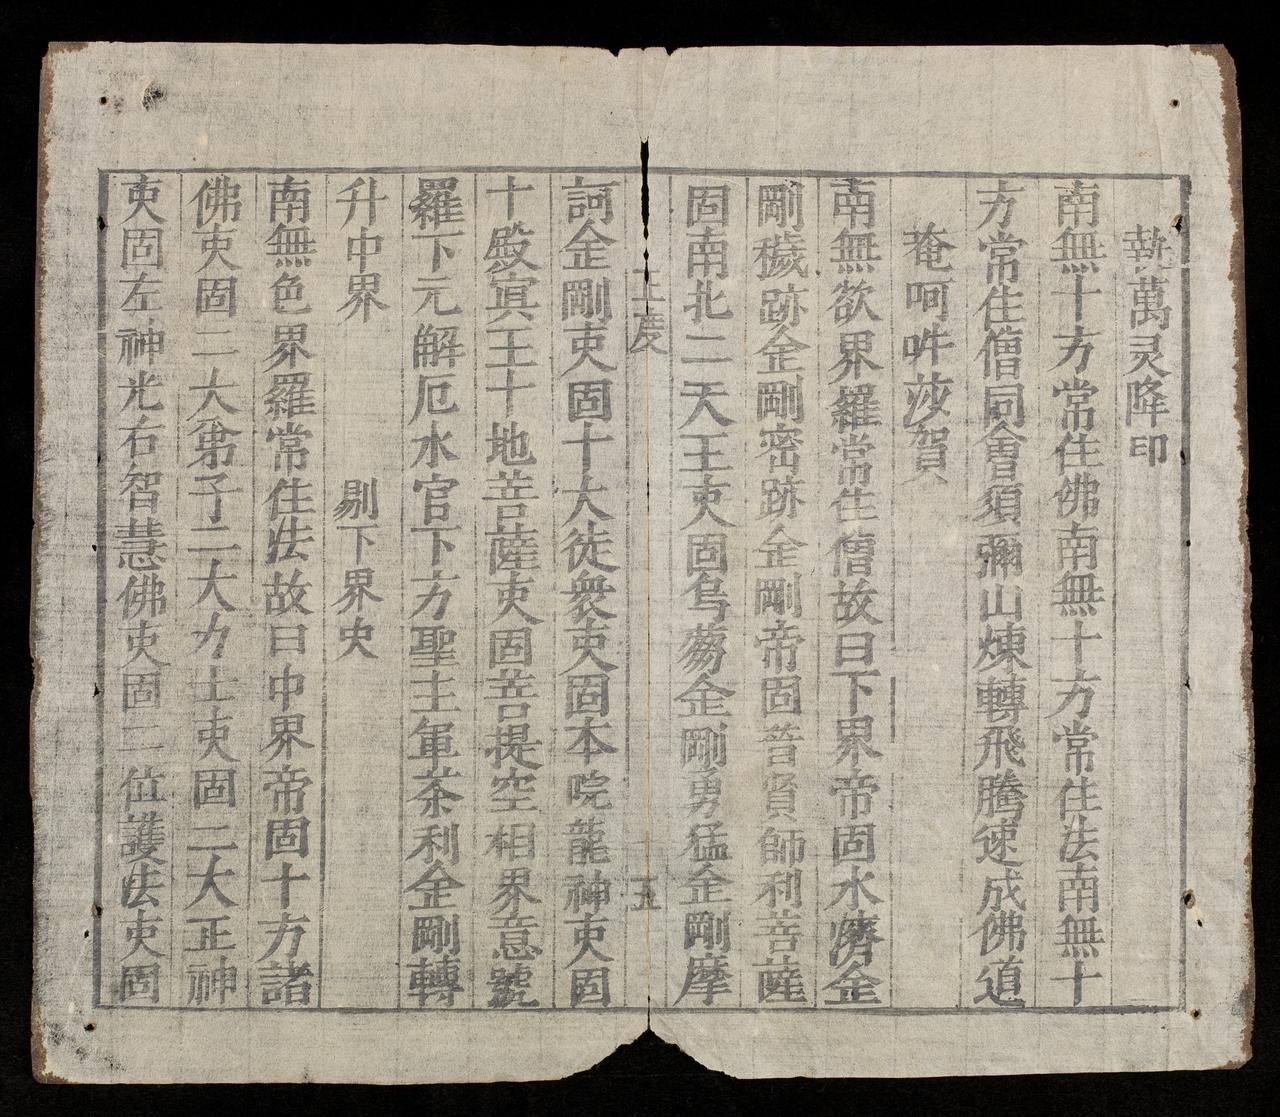 執萬灵降印
南無十方常住佛南無十方常住法南無十
方常住僧同會須彌山煉轉飛騰速成佛道
唵呵吽莎賀
南無欲界羅常住僧故曰下界帝固水濟金
剛穢跡金剛密跡金剛帝固普賢師利菩薩
固南北二天王吏固烏蒭金剛勇猛金剛摩
王度 五
訶金剛吏固十大徒衆吏固本院龍神吏固
十殿冥王十地菩薩吏固菩提空相界意號
羅下元解厄水官下方聖主軍茶利金剛轉
升中界 剔下界史
南無色界羅常住法故曰中界帝固十方諸
佛吏固二大弟子二大力士吏固二大正神
吏固左神光右智慧佛吏固二位護法吏固